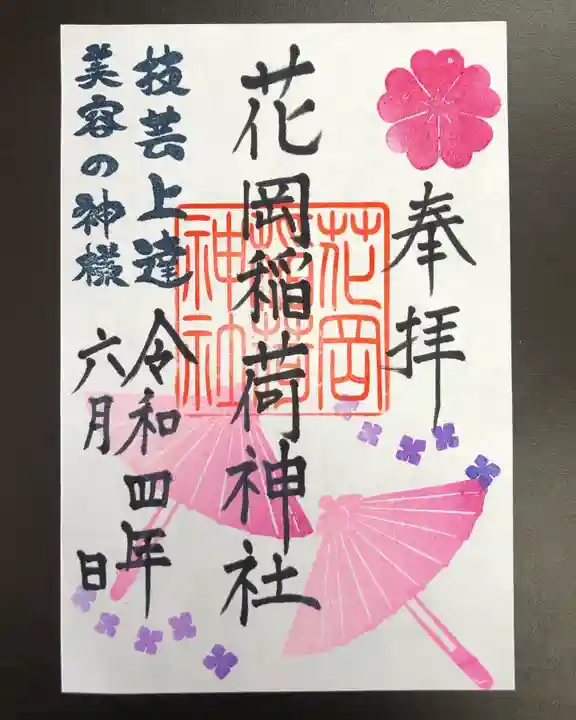 奉拝
花岡稲荷神社
花岡
稲荷
神社
技芸上達
美容の神様
令和四年
六月 日